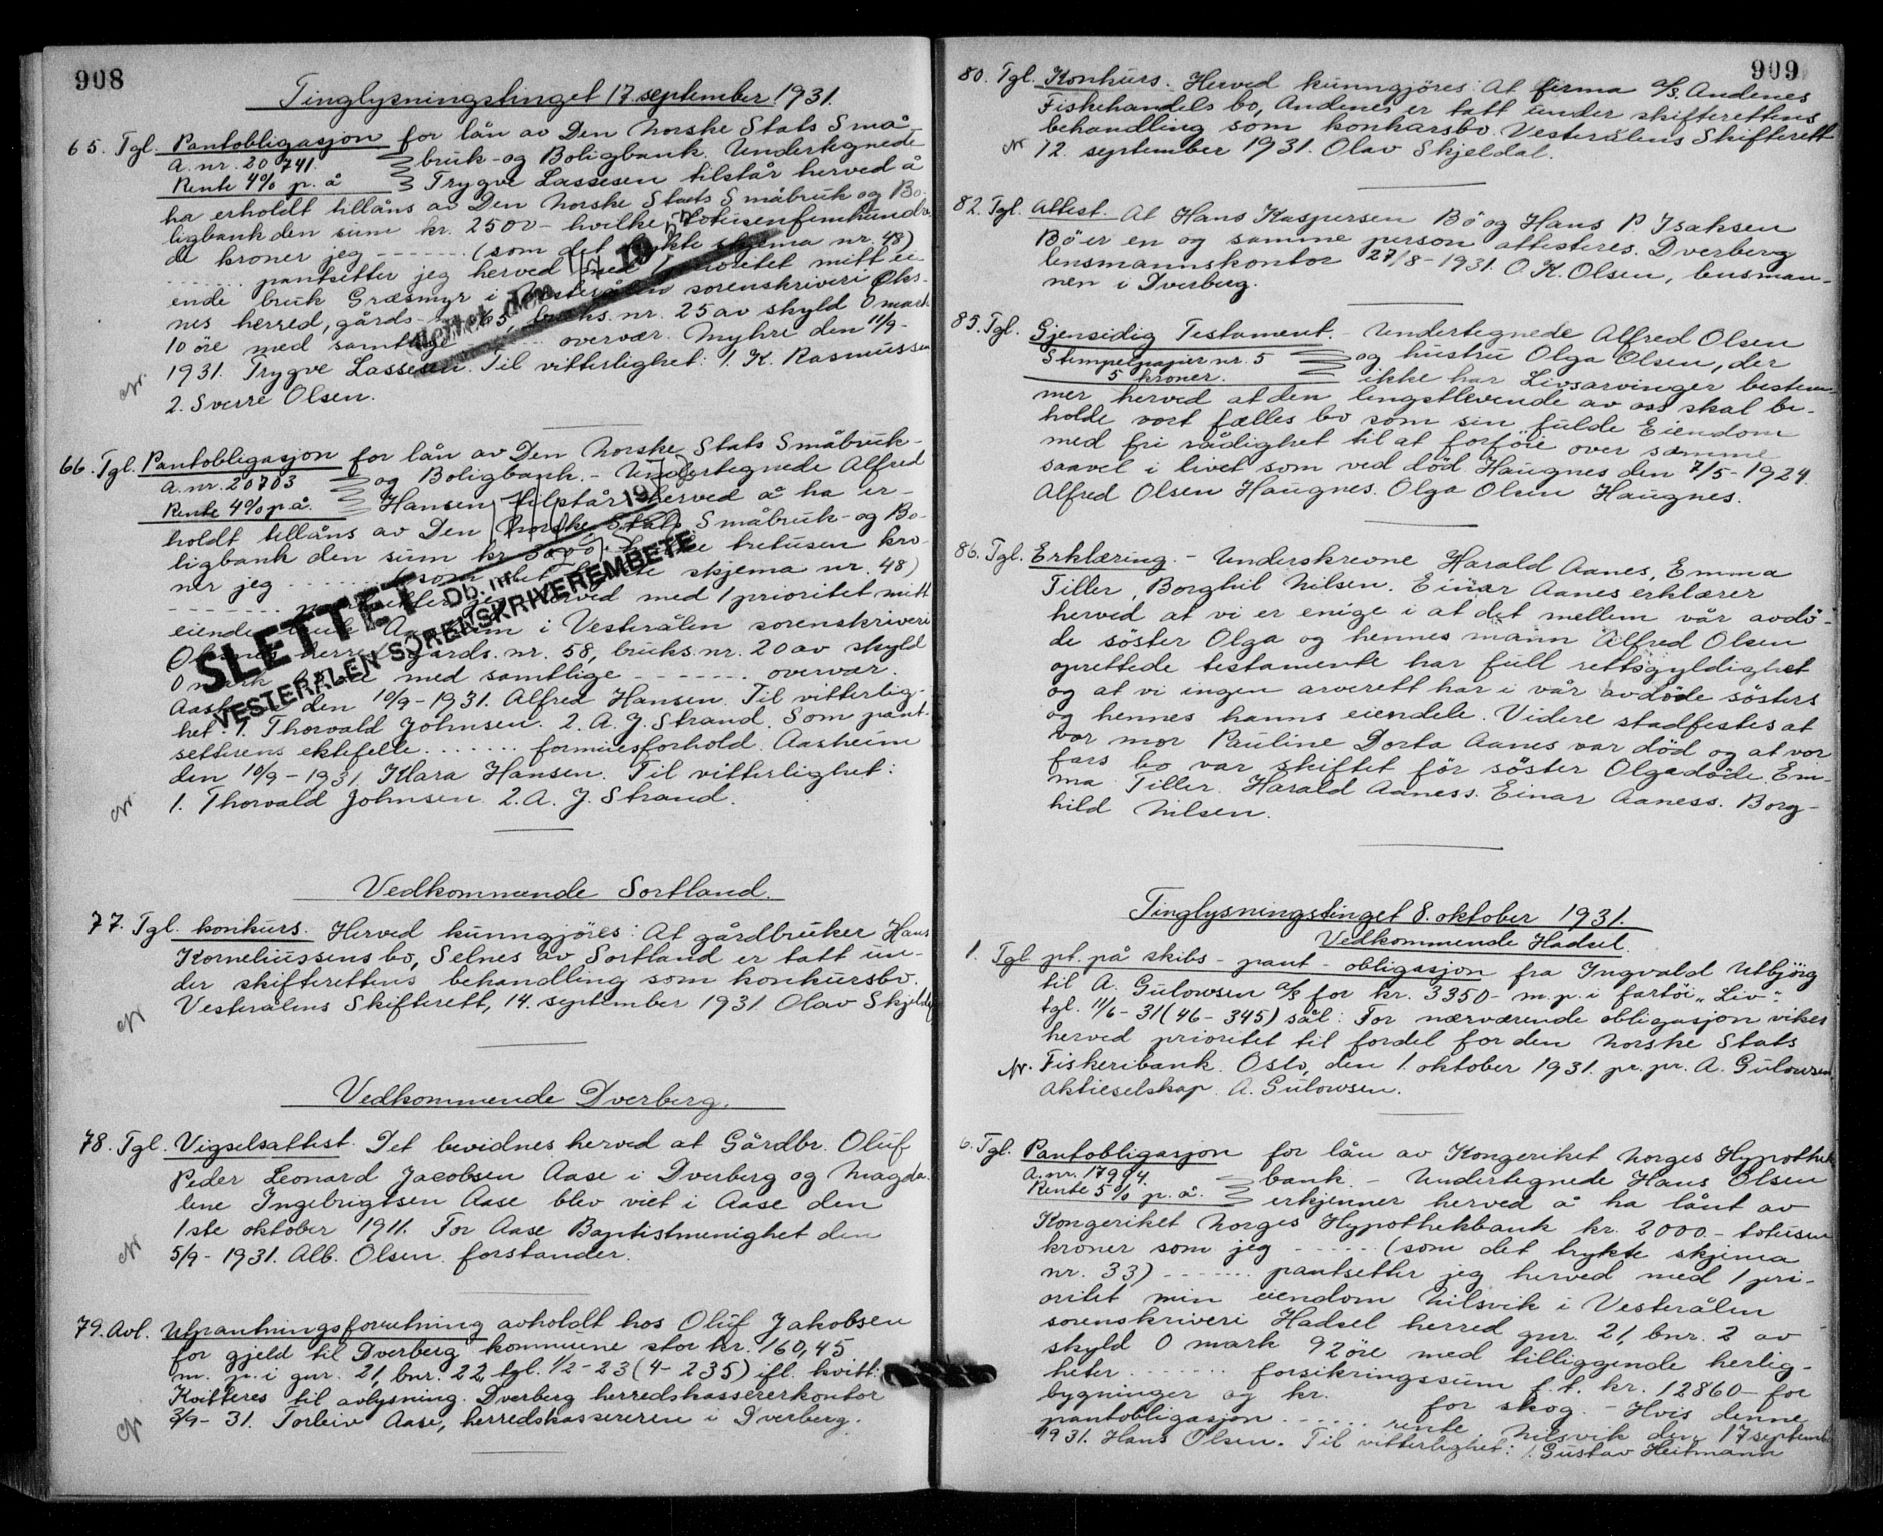 908
Tinglysningstinget 17. september 1931.
65. Tgl. Pantobligasjon for lån av Den norske Stats Små
A. nr. 20741. bruk- og Boligbank. Undertegnede
Rente 4% p. å Trygve Lassesen tilstår herved å
ha erholdt tillåns av Den norske Stats Småbruk og Bo-
ligbank den sum kr. 2500- hvilke totusenfemhundre
de kroner jeg ------- (som det trykte skjema nr. 48)
....... pantsetter jeg herved med 1 prioritet mitt ei-
ende bruk Græsmyr i Vesterålen sorenskriveri Øks-
nes herred, gårds- 65, bruks. nr. 25 av skyld 0 mark
10 öre med samtlige ....... overvær. Myhre den 11/9-
1931. Trygve Lassesen. Til vitterlighet: 1. K. Rasmussen
2. Sverre Olsen.
slettet den
66. Tgl. Pantobligasjon for lån av Den norske Stats Småbruk-
A. nr. 20703 og Boligbank. - Undertegnede Alfred
Rente 4% p å. Hansen tilstår herved å ha er-
holdt tillåns av Den norske Stats Småbruk- og Bo-
ligbank den sum kr 3000. hvilke tretusen kro-
ner jeg ....... (som det trykte skjema nr. 48)
------- pantsetter jeg herved med 1 prioritet mitt
eiende bruk Aasheim i Vesterålen sorenskriveri
Øksnes herred gårds. nr. 58, bruks. nr. 20 av skyld
0 mark öre med samtlige ------- overvær.
Aasheim den 10/9-1931. Alfred Hansen. Til vitterlig-
het: 1. Thorvald Johnsen. 2. A. J. Strand. Som pant-
setterens ektefelle ....... formuesforhold. Aasheim
den 10/9-1931. Klara Hansen. Til vitterlighet:
1. Thorvald Johnsen 2. A. J. Strand.
SLETTET
Db. nr.
VESTERÅLEN SORENSKRIVEREMBETE
Vedkommende Sortland.
77. Tgl. konkurs. Herved kunngjöres: At gårdbruker Hans
Korneliussens bo, Selnes av Sortland er tatt un-
der skifterettens behandling som konkursbo.
Vesterålens Skifterett, 14. september 1931 Olav Skjeldal
Vedkommende Dverberg.
78. Tgl. Vigselsattest. Det bevidnes herved at Gårdbr. Oluf
Peder Leonard Jacobsen Aase i Dverberg og Magda-
lene Ingebrigtsen Aase blev viet i Aase den
1ste oktober 1911. For Aase Baptistmenighet den
5/9-1931. Alb. Olsen forstander.
79. Avl. Utpantningsforretning avholdt hos Oluf Jakobsen
for gjeld til Dverberg kommune stor kr. 160,45
m. p. i gnr. 21, bnr. 22 tgl. 1/2-23 (4-235) ifl. kvitt:
Kvitteres til avlysning. Dverberg herredskassererkontor
3/9-31. Torleiv Aase, herredskassereren i Dverberg.
909
80. Tgl. Konkurs. Herved kunngjöres: At firma A/S. Andenes
Fiskehandels bo, Andenes er tatt under skifterettens
behandling som konkursbo. Vesterålens Skifterett
12. september 1931. Olav Skjeldal.
82. Tgl. Attest. At Hans Kaspersen Bö og Hans P Isaksen
Bö er en og samme person attesteres. Dverberg
lensmannskontor 27/8-1931. O. K. Olsen, lensman-
nen i Dverberg.
85. Tgl. Gjensidig Testament. - Undertegnede Alfred Olsen
Stempelpapier nr. 5 og hustru Olga Olsen, der
5 kroner. ikke har Livsarvinger bestem-
mer herved at den lengstlevende av oss skal be-
holde vort fælles bo som sin fulde Eiendom
med fri rådighet til at forföie over samme
saavel i livet som ved död. Haugnes den 7/5-1924.
Alfred Olsen Haugnes. Olga Olsen Haugnes.
86. Tgl. Erklæring. - Underskrevne Harald Aanes, Emma
Tiller, Borghil Nilsen. Einar Aanes erklærer
herved at vi er enige i at det mellem vår avdö-
de söster Olga og hennes mann Alfred Olsen
oprettede testamente har full rettsgyldighet
og at vi ingen arverett har i vår avdöde sösters
og hennes manns eiendele. Videre stadfestes at
vor mor Pauline Dorta Aanes var död og at vor
fars bo var skiftet för söster Olga döde. Em-
ma Tiller. Harald Aaness. Einar Aaness. Borg-
hild Nilsen.
Tinglysningstinget 8. oktober 1931.
Vedkommende Hadsel.
1. Tgl pt. på skibs-pant-obligasjon fra Ingvald Utbjörg
til A. Gulowsen A/S for kr. 3350- m. p. i fartöi „Liv".
tgl. 11/6-31 (46-345) sål: For nærværende obligasjon vikes
herved prioritet til fordel for den norske Stats
Fiskeribank. Oslo, den 1. oktober 1931. pr. pr. A. Gulowsen
aktieselskap. A. Gulowsen.
6. Tgl. Pantobligasjon for lån av Kongeriket Norges Hypothek
A. nr. 17994. bank. - Undertegnede Hans Olsen
Rente 5% p. å. erkjenner herved å ha lånt av
Kongeriket Norges Hypothekbank kr. 2000.- totusen
kroner som jeg ------ (som det trykte skjema
nr. 33) ------- pantsetter jeg herved med 1 pri-
oritet min eiendom Nilsvik i Vesterålen
sorenskriveri Hadsel herred gnr. 21, bnr. 2 av
skyld 0 mark 92 öre med tilliggende herlig-
heter ....... forsikringssum f.t. kr. 12860- for
bygninger og kr. for skog. - Hvis denne
pantobligasjon ...... rente. Nilsvik den 17 septembe
1931. Hans Olsen. Til vitterlighet: 1. Gustav Heitmann